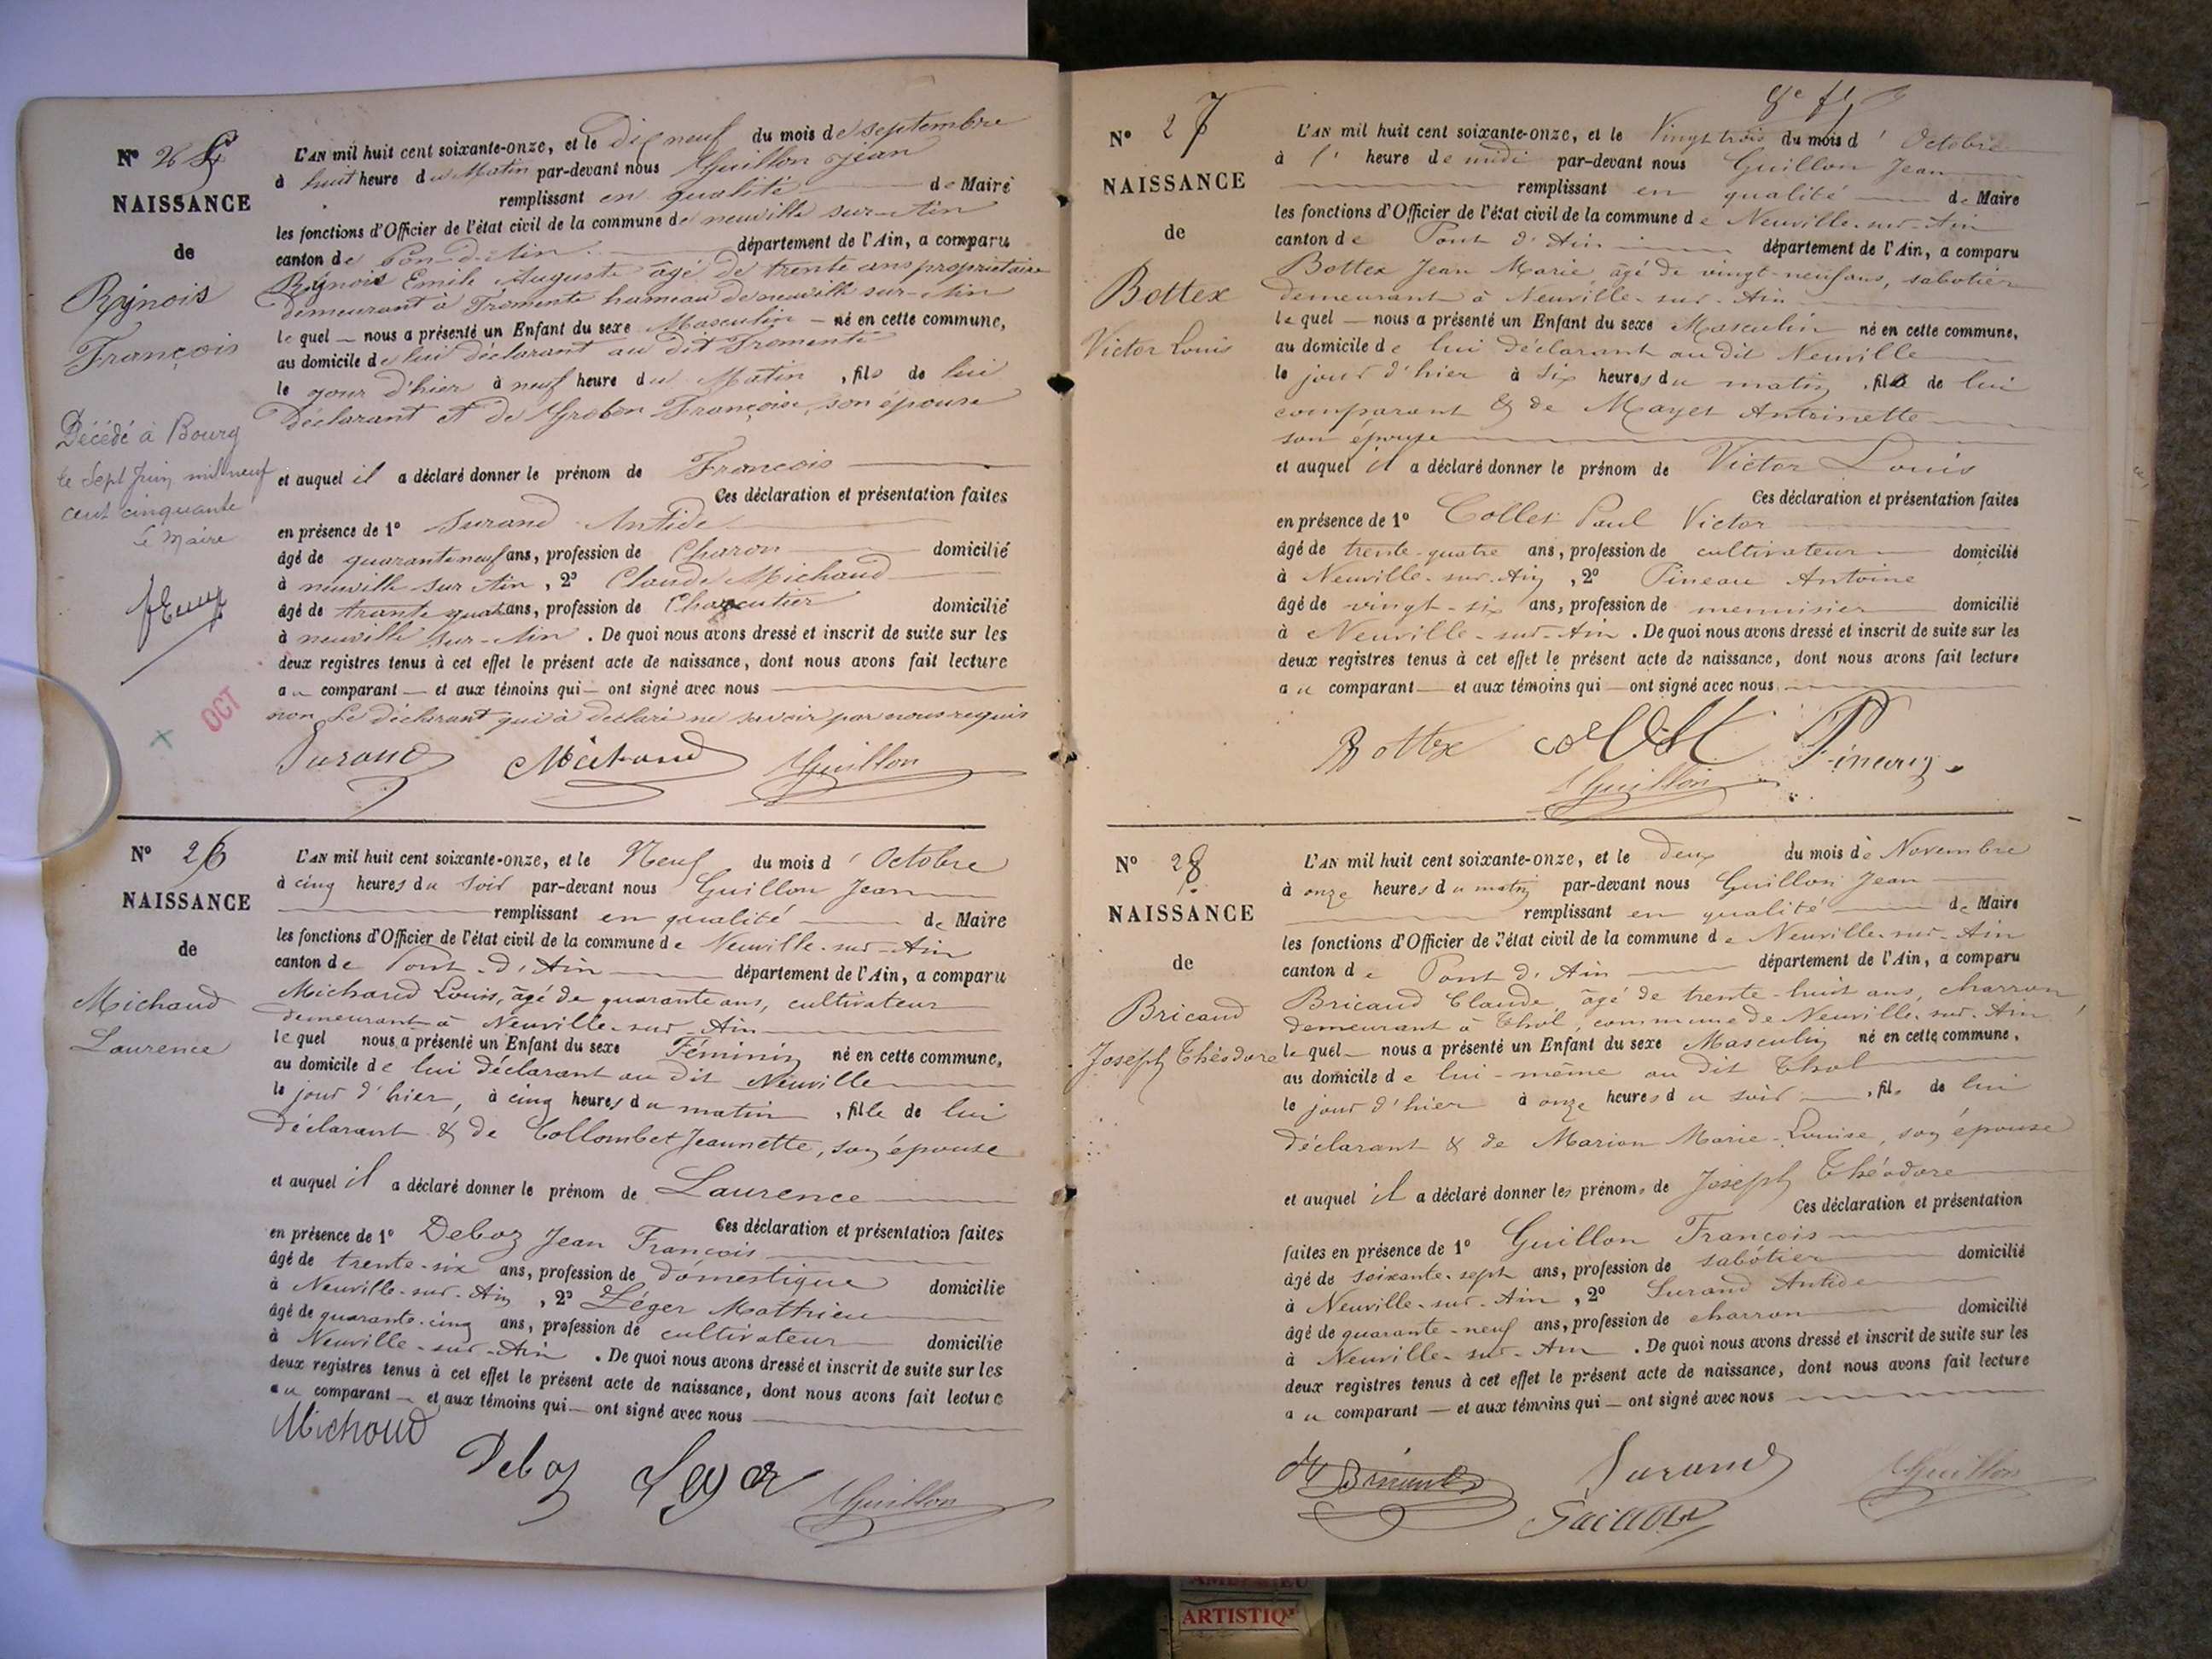 N° 25
NAISSANCE
de
Reynois
François
Décédé à Bourg
le sept Juin mil neuf
cent cinquante
Le Maire
OCT
L'AN mil huit cent soixante-onze, et le Dix neuf du mois de septembre
à huit heure du Matin par-devant nous Guillon jean
remplissant en qualité de Maire
les fonctions d'Officier de l'état civil de la commune de neuville sur-Ain
canton de Pon-d-Ain département de l'Ain, a comparu
Reynois Emile Auguste âgé de trente ans propriétaire
demeurant à Fromente hameau de neuville sur-Ain
le quel nous a présenté un Enfant du sexe Masculin né en cette commune,
au domicile de lui déclarant au dit Fromente
le jour d'hier à neuf heure du Matin, fils de lui
Déclarant et de Grobon Françoise, son épouse
et auquel il a déclaré donner le prénom de François
Ces déclaration et présentation faites
en présence de 1° Surand Antide
âgé de quaranteneuf ans, profession de Charon domicilié
à neuville sur Ain, 2° Claude Michaud
âgé de trante quatre ans, profession de Charcutier domicilié
à neuville sur-Ain. De quoi nous avons dressé et inscrit de suite sur les
deux registres tenus à cet effet le présent acte de naissance, dont nous avons fait lecture
au comparant et aux témoins qui ont signé avec nous
non Le déclarant qui à déclaré ne savoir par nous requis
Surand Michaud Guillon
N° 26
NAISSANCE
de
Michaud
Laurence
L'AN mil huit cent soixante-onze, et le Neuf du mois d'Octobre
à cinq heures du soir par-devant nous Guillon Jean
remplissant en qualité de Maire
les fonctions d'Officier de l'état civil de la commune de Neuville-sur-Ain
canton de Pont-d'Ain département de l'Ain, a comparu
Michaud Louis, âgé de quarante ans, cultivateur
demeurant à Neuville-sur-Ain
le quel nous a présenté un Enfant du sexe Féminin né en cette commune,
au domicile de lui déclarant au dit Neuville
le jour d'hier, à cinq heures du matin, fille de lui
déclarant & de Collombet Jeannette, son épouse
et auquel il a déclaré donner le prénom de Laurence
Ces déclaration et présentation faites
en présence de 1° Deboz Jean François
âgé de trente-six ans, profession de domestique domicilié
à Neuville-sur-Ain, 2° Léger Mathieu
âgé de quarante-cinq ans, profession de cultivateur domicilié
à Neuville-sur-Ain. De quoi nous avons dressé et inscrit de suite sur les
deux registres tenus à cet effet le présent acte de naissance, dont nous avons fait lecture
au comparant et aux témoins qui ont signé avec nous
Michaud
Deboz Leger Guillon
N° 27
NAISSANCE
de
Bottex
Victor Louis
L'AN mil huit cent soixante-onze, et le Vingt trois du mois d'Octobre
à l'heure de midi par-devant nous Guillon Jean
remplissant en qualité de Maire
les fonctions d'Officier de l'état civil de la commune de Neuville-sur-Ain
canton de Pont d'Ain département de l'Ain, a comparu
Bottex Jean Marie âgé de vingt-neuf ans, sabotier
demeurant à Neuville-sur-Ain
le quel nous a présenté un Enfant du sexe Masculin né en cette commune,
au domicile de lui déclarant au dit Neuville
le jour d'hier à six heures du matin, fils de lui
comparant & de Mayet Antoinette
son épouse
et auquel il a déclaré donner le prénom de Victor Louis
Ces déclaration et présentation faites
en présence de 1° Collet Paul Victor
âgé de trente-quatre ans, profession de cultivateur domicilié
à Neuville-sur-Ain, 2° Pineau Antoine
âgé de vingt-six ans, profession de menuisier domicilié
à Neuville-sur-Ain. De quoi nous avons dressé et inscrit de suite sur les
deux registres tenus à cet effet le présent acte de naissance, dont nous avons fait lecture
au comparant et aux témoins qui ont signé avec nous
Bottex
Guillon
N° 28
NAISSANCE
de
Bricaud
Joseph Théodore
L'AN mil huit cent soixante-onze, et le deux du mois de Novembre
à onze heures du matin par-devant nous Guillon Jean
remplissant en qualité de Maire
les fonctions d'Officier de l'état civil de la commune de Neuville-sur-Ain
canton de Pont d'Ain département de l'Ain, a comparu
Bricaud Claude âgé de trente-huit ans, charron
demeurant à Thol, commune de Neuville-sur-Ain
le quel nous a présenté un Enfant du sexe Masculin né en cette commune,
au domicile de lui-même au dit Thol
le jour d'hier à onze heures du soir, fils de lui
déclarant & de Marion Marie-Louise, son épouse
et auquel il a déclaré donner les prénoms de Joseph Théodore
Ces déclaration et présentation
faites en présence de 1° Guillon François
âgé de soixante-sept ans, profession de sabotier domicilié
à Neuville-sur-Ain, 2° Surand Antide
âgé de quarante-neuf ans, profession de charron domicilié
à Neuville-sur-Ain. De quoi nous avons dressé et inscrit de suite sur les
deux registres tenus à cet effet le présent acte de naissance, dont nous avons fait lecture
au comparant et aux témoins qui ont signé avec nous
Surand
Guillon
ARTISTIQ